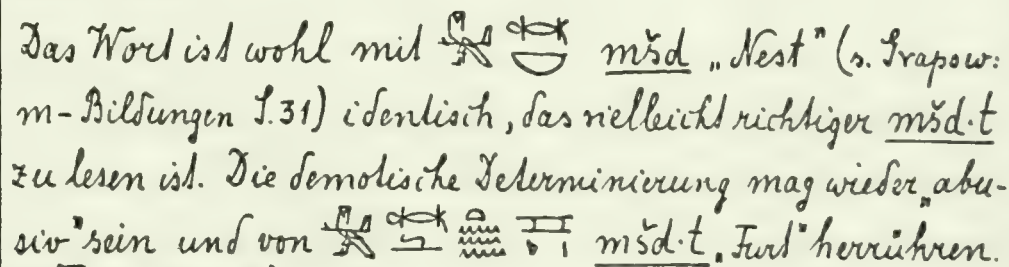 Das Wort ist wohl mit mšd „Nest" (s. Grapow:
m-Bildungen S. 31) identisch, das vielleicht richtiger mšd·t
zu lesen ist. Die demotische Determinierung mag wieder „abu-
siv" sein und von mšd·t „Furt" herrühren.